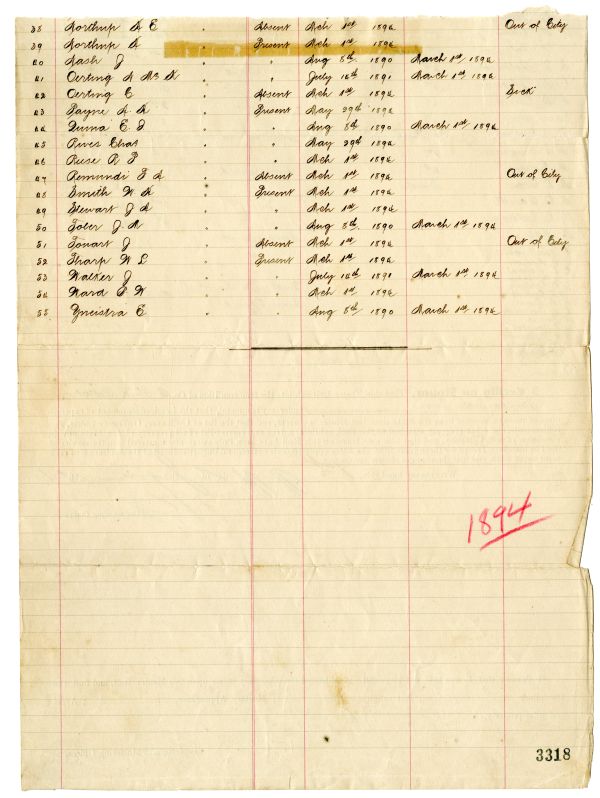 38 Northup A E . Absent Mch 1st 1894 Out of City
39 Northup A . Present Mch 1st 1894
40 Nash J . " Aug 8th 1890 March 1st 1894
41 Oerting A Mc K . " July 16th 1891 March 1st 1894
42 Oerting C . Absent Mch 1st 1894 Sick
43 Payne A A . Present May 29th 1894
44 E J . " Aug 8th 1890 March 1st 1894
45 Rives Chas . " May 29th 1894
46 Reese R P . " Mch 1st 1894
47 Remundi F A . Absent Mch 1st 1894 Out of City
48 Smith W K . Present Mch 1st 1894
49 Stewart J A . " Mch 1st 1894
50 J A . " Aug 8th 1890 March 1st 1894
51 Touart J . Absent Mch 1st 1894 Out of City
52 Tharp W L . Present Mch 1st 1894
53 Walker J . " July 16th 1891 March 1st 1894
54 Ward E W . " Mch 1st 1894
55 Yniestra E . " Aug 8th 1890 March 1st 1894
1894
3318